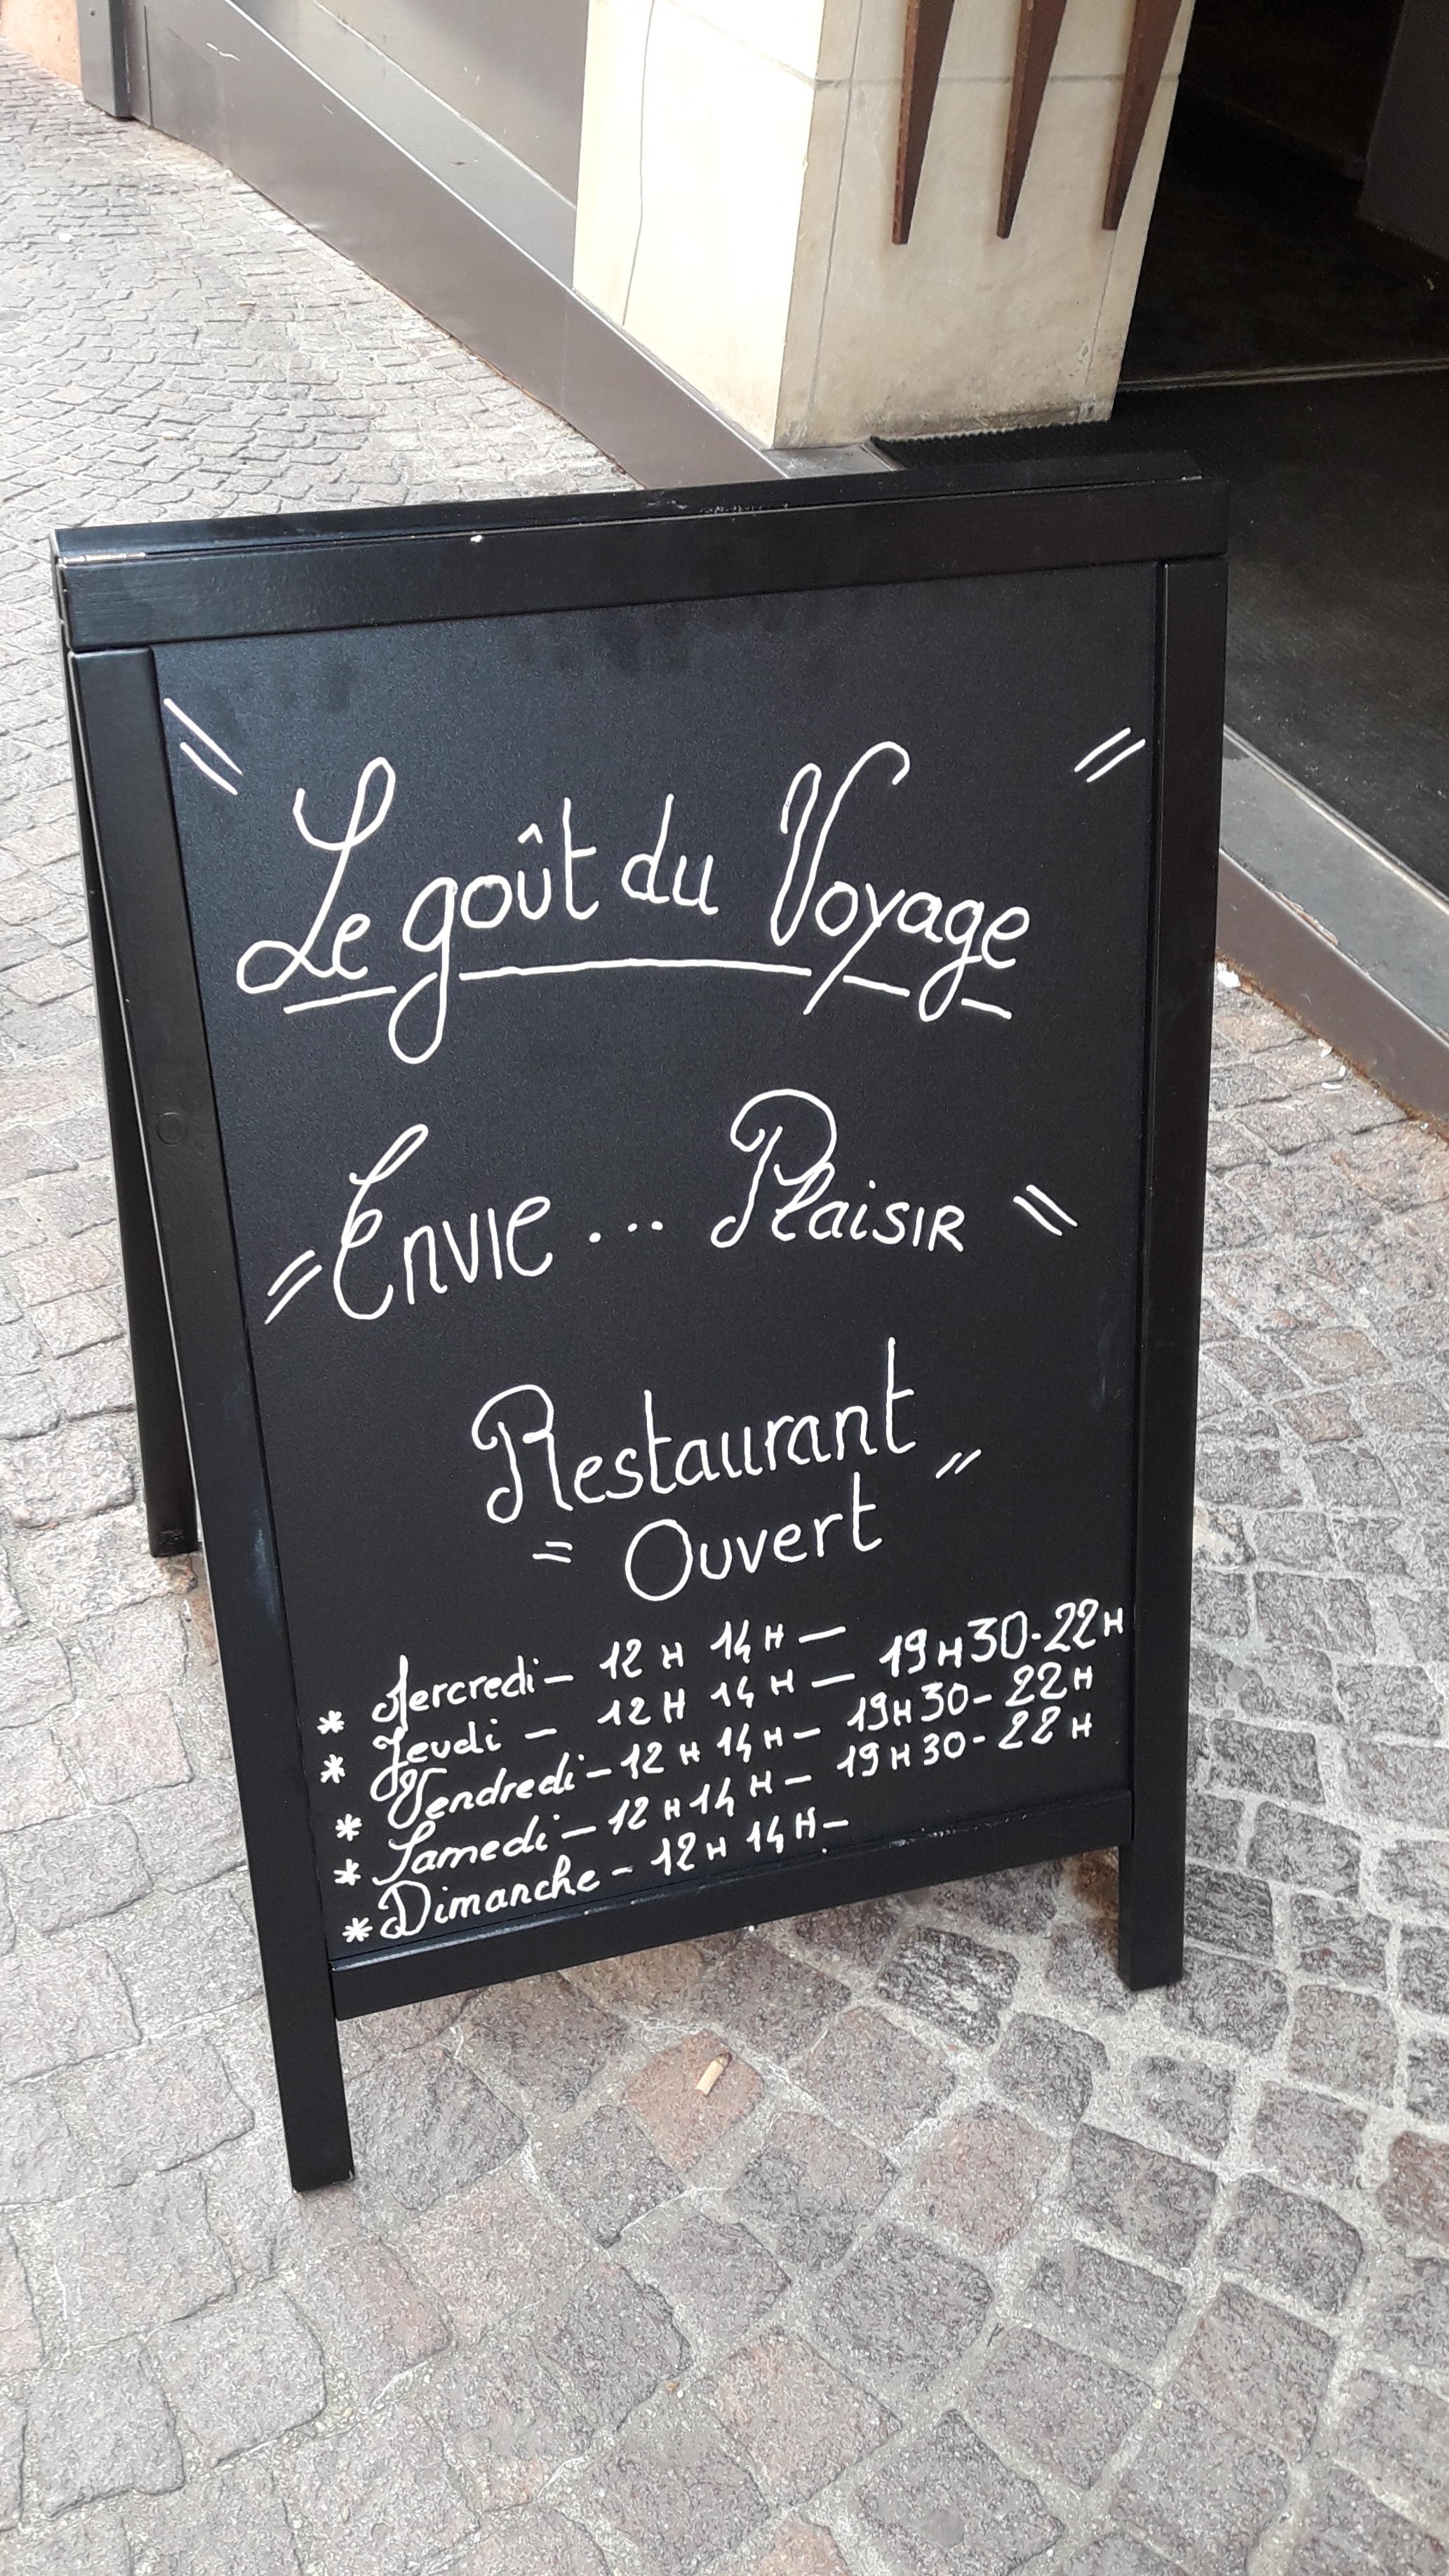 Le goût du Voyage
Envie... Plaisir
Restaurant
= Ouvert "
* Mercredi – 12H 14H –
* Jeudi – 12H 14H – 19H30-22H
* Vendredi – 12H 14H – 19H30-22H
* Samedi – 12H 14H – 19H30-22H
* Dimanche – 12H 14H –